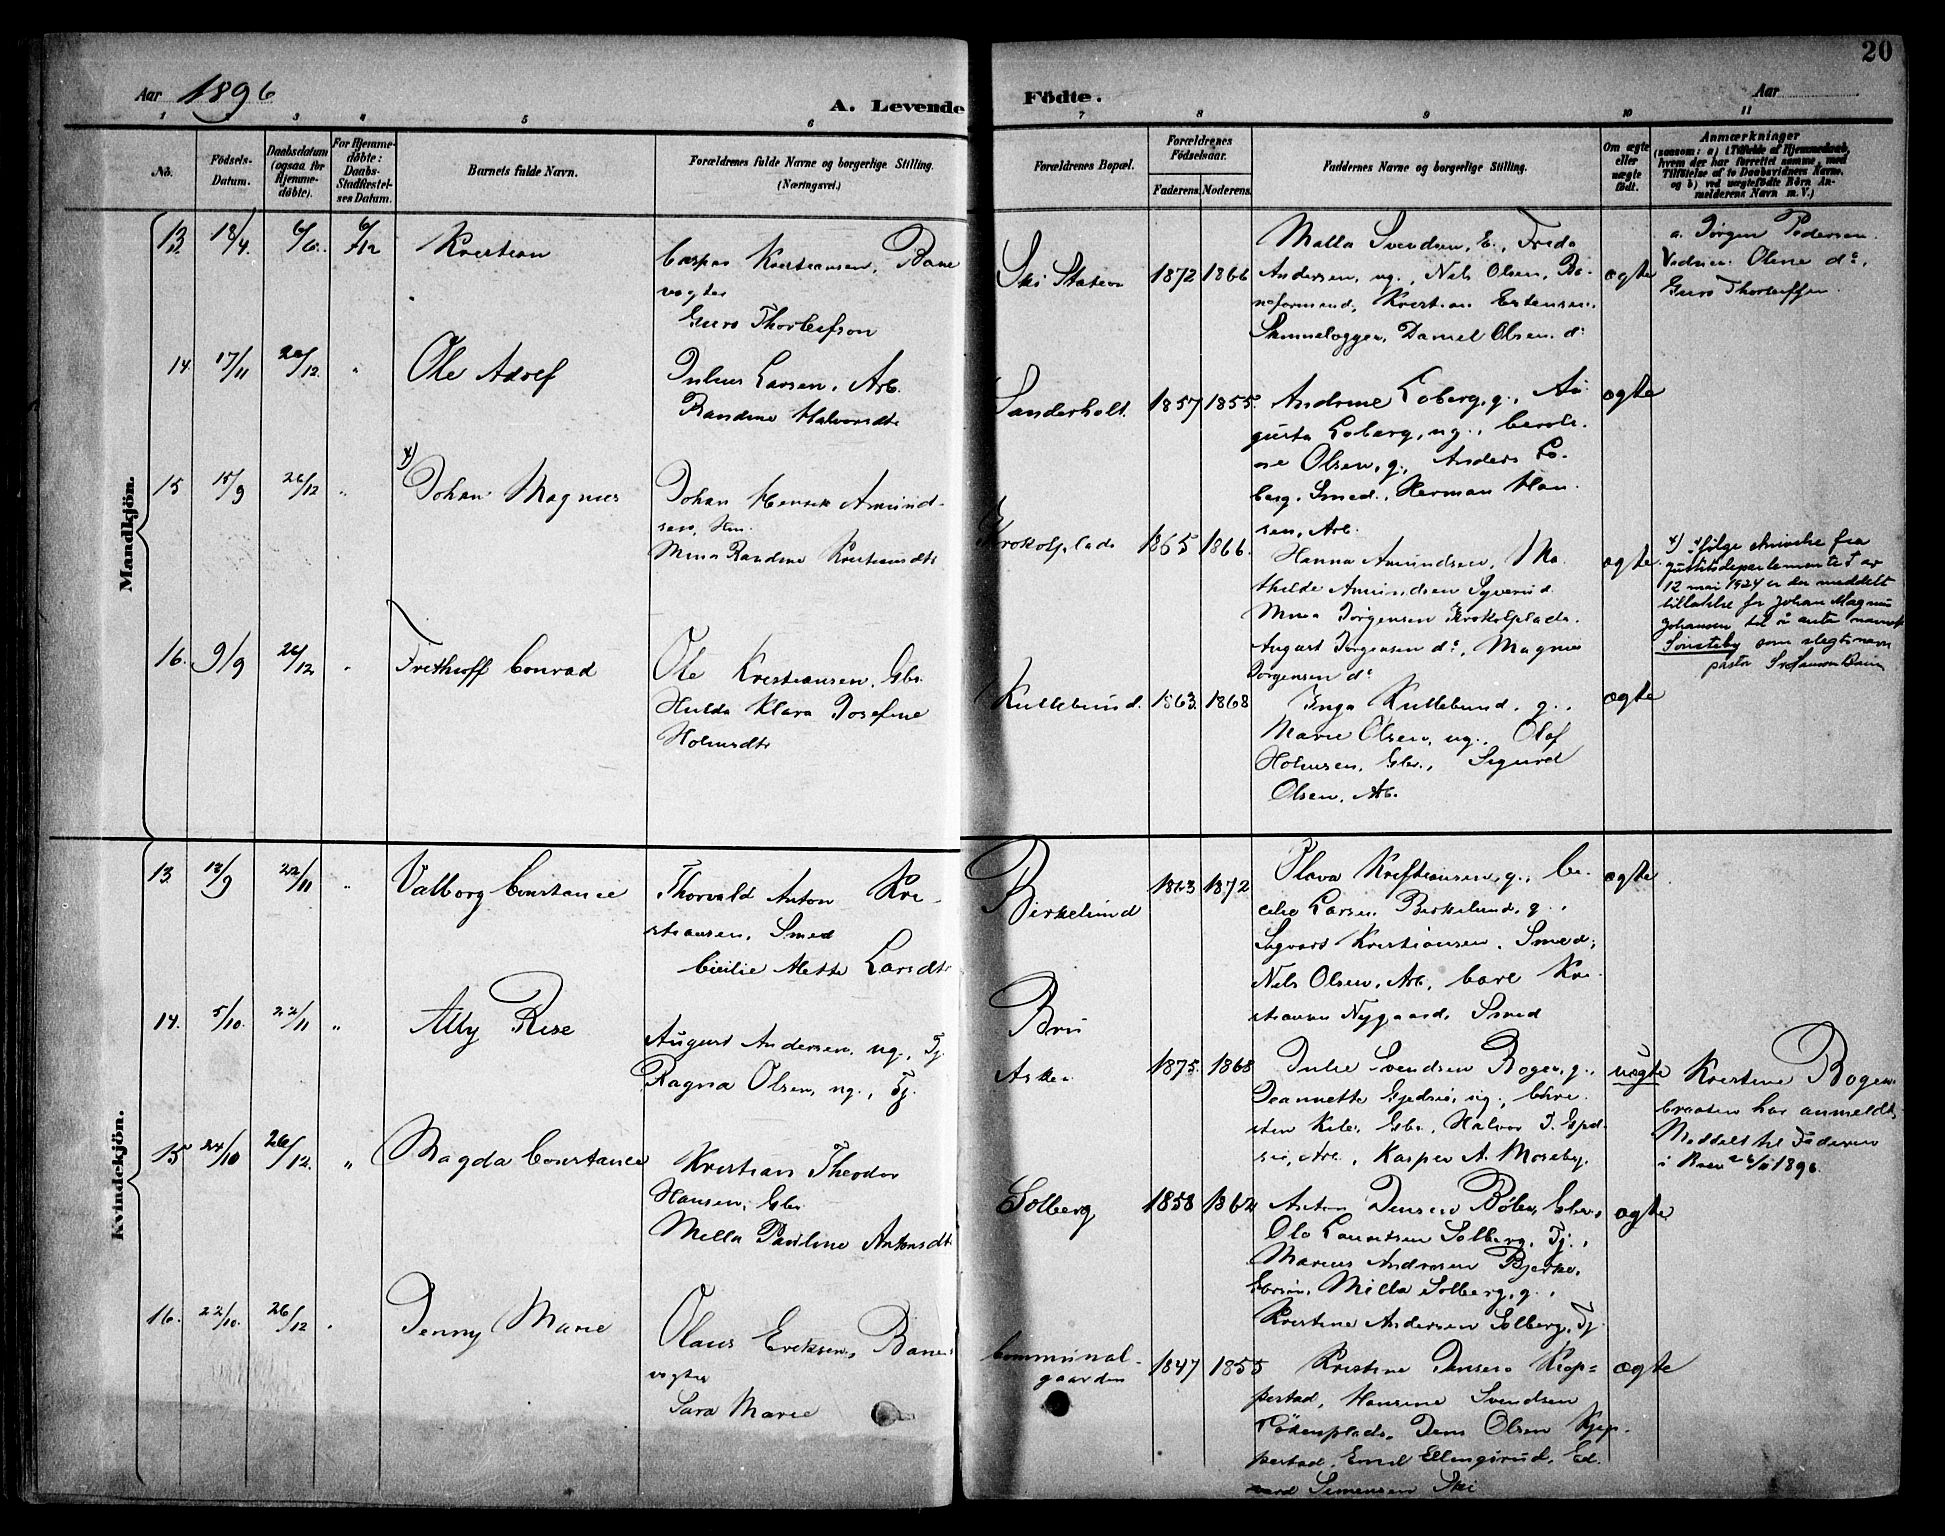 20
Aar 1896
A. Levende Födte.
Aar
1 2 3 4 5 6 7 8 9 10 11
No.
Födsels-
Datum.
Daabsdatum
(ogsaa for
Hjemme-
döbte).
For Hjemme-
döbte:
Daabs-
Stadfæstel-
ses Datum.
Barnets fulde Navn.
Forældrenes fulde Navne og borgerlige Stilling.
(Næringsvei.)
Forældrenes Bopæl.
Forældrenes
Födselsaar.
Faderens. Moderens.
Faddernes Navne og borgerlige Stilling.
Om ægte
eller
uægte
födt.
Anmærkninger
(saasom: a) i Tilfælde af Hjemmedaab,
hvem der har forrettet samme, med
Tilföielse af to Daabsvidners Navne,
og b) ved uægtefödte Börn An-
melderens Navn m. V.)
Mandkjön.
13. 18/4. 6/6. 6/12 Kristian
Caspar Kristiansen, Bane
vogter
Guro Thorleifson
Ski Station 1872 1866
Malla Svendsen, E., Frida
Andersen, ug., Nils Olsen, Ba-
neformand, Kristian Estensen,
Skinnelægger, Daniel Olsen, do
ægte
a. Jörgen Pedersen
Vidner: Oline do,
Guro Thorleifsen
14. 17/11 26/12. " Ole Adolf
Julius Larsen, Arb.
Randine Halvorsdtr
Sanderholt. 1857 1855.
Andrine Loberg, g., Au
gusta Loberg, ug., Caroli
ne Olsen, g., Anders Lo-
berg, Smed, Herman Han
sen, Arb.
ægte
15 15/9 26/12 " x) Johan Magnus
Johan Henrik Amund-
sen, Hm.
Mina Randine Kristiansdtr
Krokolplads 1865 1866.
Hanna Amundsen, Ma
thilde Amundsen Syverud
Mina Jörgensen Krokolplads.
August Jörgensen do, Magnus
Jörgensen do
ægte.
x) Ifölge skrivelse fra
justitsdepartementet av
12 mai 1924 er der meddelt
tillatelse for Johan Magnus
Johansen til å anta navnet
Sönsteby som slegtsnavn
pastor
16. 9/9 26/12 " Frithioff Conrad
Ole Kristiansen, Gbr.
Hulda Klara Josefine
Holmsdtr
Kullebund. 1863. 1868
Inga Kullebund, g.,
Marie Olsen, ug., Olaf
Holmsen, Gbr., Sigurd
Olsen, Arb.
ægte
Kvindekjön.
13. 18/9 22/11 " Valborg Constance
Thorvald Anton Kri-
stiansen, Smed
Cicilie Mette Larsdtr
Birkelund 1863 1872
Olava Kristiansen, g., Ce-
cilie Larsen Birkelund, g.,
Sigvart Kristiansen, Smed,
Nils Olsen, Arb, Carl Kri-
stiansen Nygaard, Smed
ægte.
14. 5/10. 22/11 " Ally Rise
August Andersen, ug., Tj.
Ragna Olsen, ug., Tj.
Bru
Asker 1875. 1868
Julie Svendsen Bogen, g.,
Jeannette Gjedsiö, ug., Chri
sten Kile, Gbr., Halvor J. Gjed-
siö, Arb., Kasper A. Moseby.
uægte
Kristine Bogen
braaten har anmeldt.
Meddelt til Faderen
i Brev 26/11 1896.
15 24/10 26/12. " Magda Constance
Kristian Theodor
Hansen, Gbr
Milla Pauline Antonsdtr
Solberg 1858 1862
Anton Jensen Böler, Gbr,
Ole Lauritsen Solberg, Tj.,
Marius Andersen Bjerke,
Gbrsön, Milla Solberg, g.,
Kristine Andersen Solberg, Tj
ægte
16. 22/10. 26/12 " Jenny Marie
Olaus Eriksen, Bane-
vogter
Sara Marie
Communal-
gaarden 1847 1855
Kristine Jensen Kjep-
pestad, Hansine Svendsen
Födenplads, Jens Olsen Kjep-
pestad, Emil Ellingsrud, Ed-
vard Simensen Ski
ægte